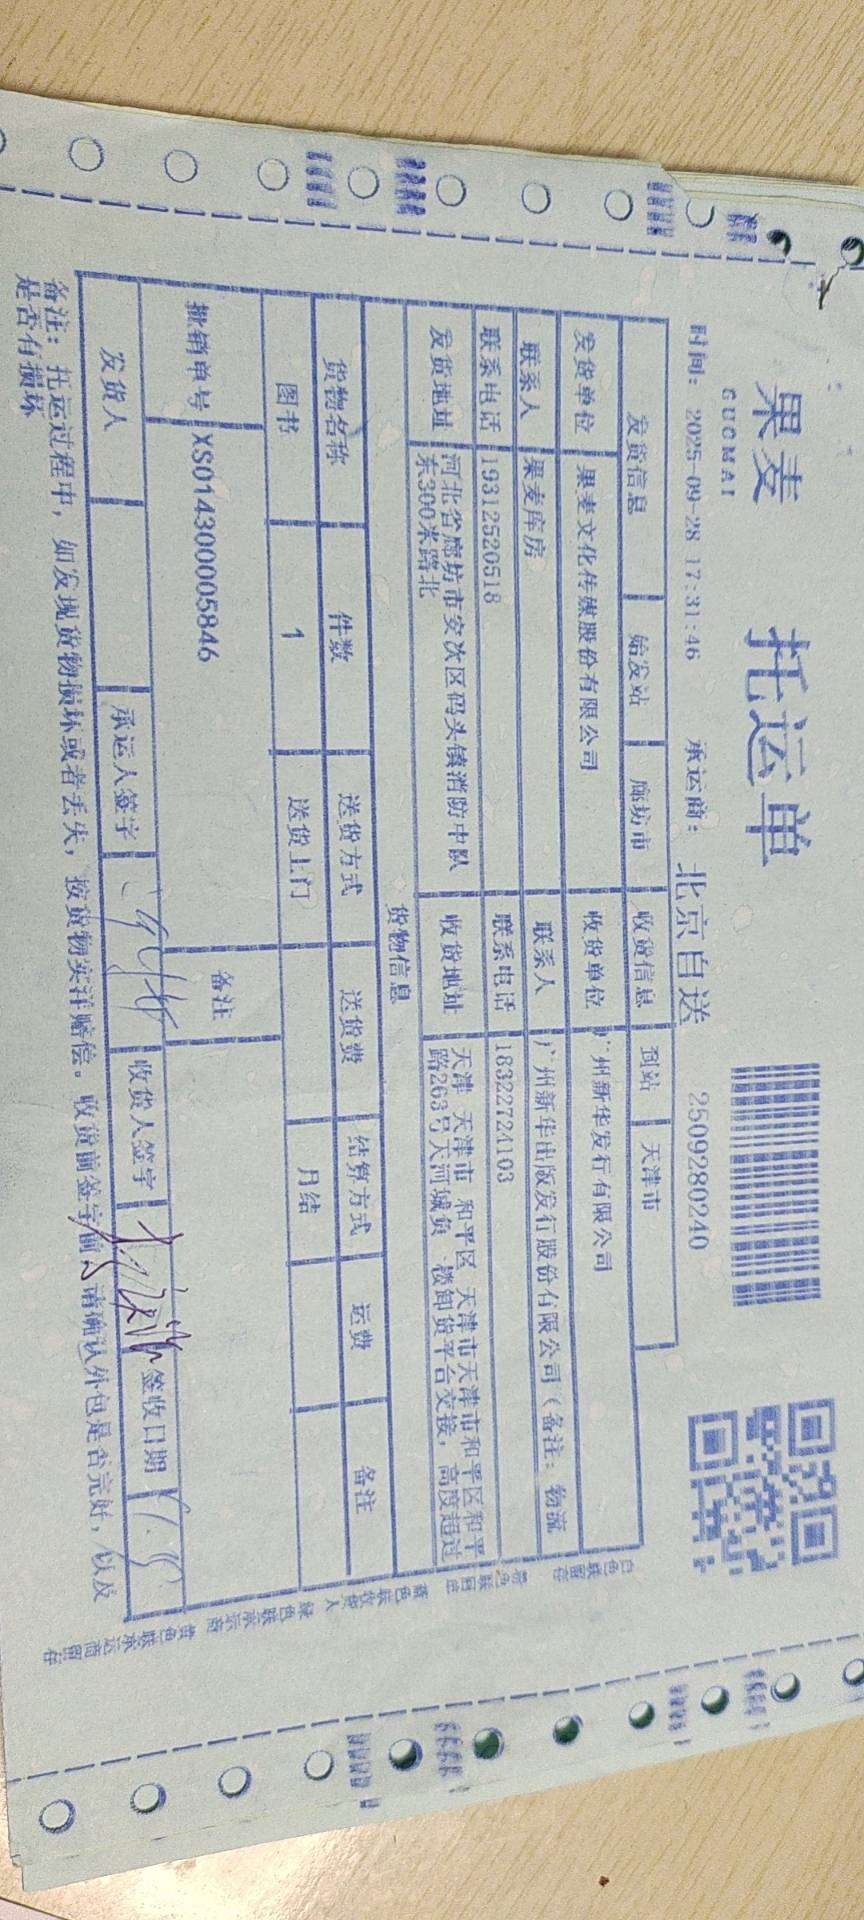 果麦
GUOMAI
托运单
2509280240
时间: 2025-09-28 17:31:46 承运商: 北京自送
发货信息 始发站 廊坊市 收货信息 到站 天津市
发货单位 果麦文化传媒股份有限公司 收货单位 广州新华发行有限公司
联系人 果麦库房 联系人 广州新华出版发行股份有限公司(备注:物流
联系电话 19312520518 联系电话 18322724103
发货地址 河北省廊坊市安次区码头镇消防中队 收货地址 天津 天津市 和平区 天津市天津市和平区和平
东300米路北 路263号天河城负一楼卸货平台交接,高度超过
货物信息
货物名称 件数 送货方式 送货费 结算方式 运费 备注
图书 1 送货上门 月结
批销单号 XS014300005846 备注
发货人 承运人签字 收货人签字 签收日期
备注: 托运过程中,如发现货物损坏或者丢失,按货物实洋赔偿。收货前签字前,请确认外包是否完好,以及
是否有损坏
白色联留存
蓝色联收货人
绿色联承示商
黄色联承运商留存